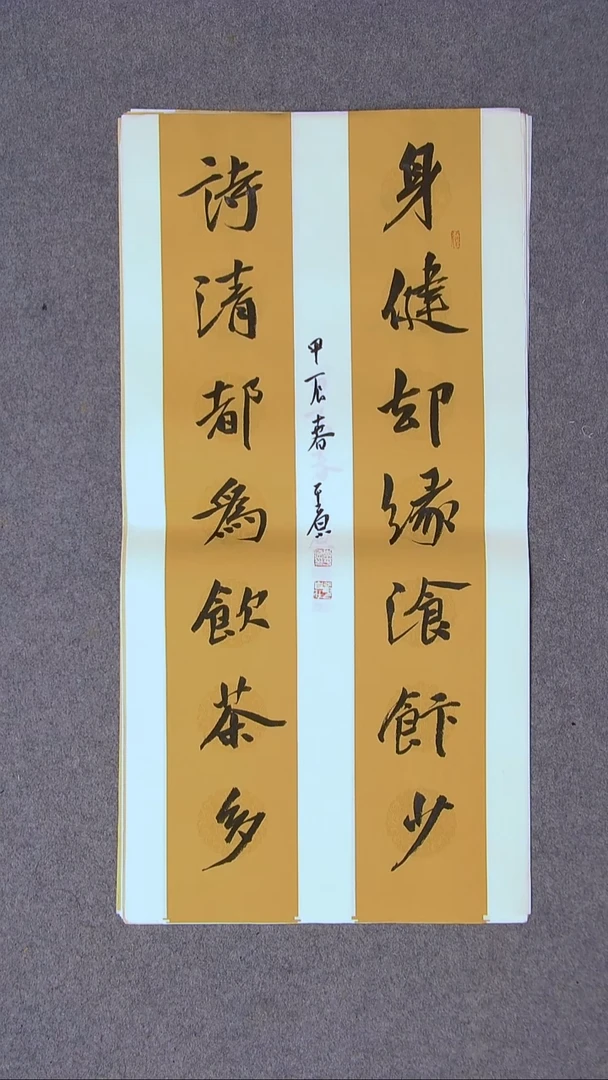 身健却緣湌飰少
詩清都爲飲茶多
甲辰春